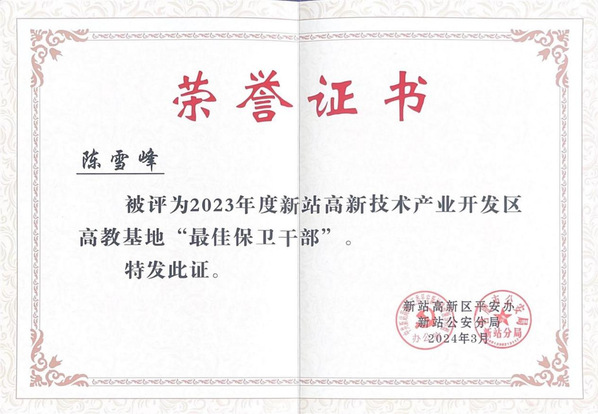 荣誉证书
陈雪峰
被评为2023年度新站高新技术产业开发区
高教基地“最佳保卫干部”。
特发此证。
新站高新区平安办
新站公安分局
2024年3月
新站分局